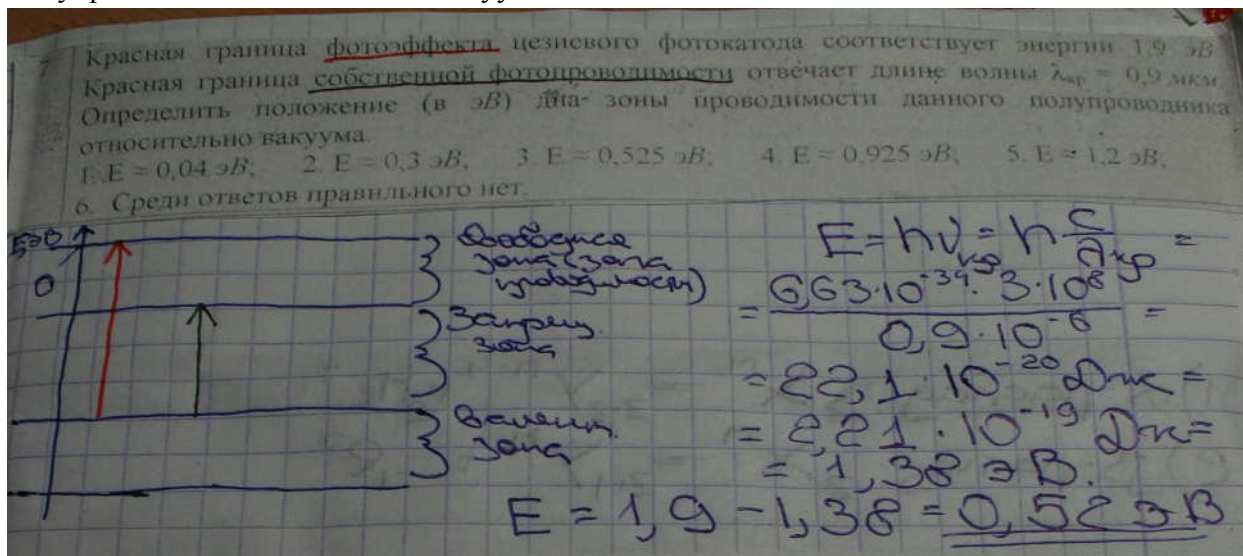 Красная граница фотоэффекта цезиевого фотокатода соответствует энергии 1,9 эВ.
Красная граница собственной фотопроводимости отвечает длине волны λкр = 0,9 мкм.
Определить положение (в эВ) дна зоны проводимости данного полупроводника
относительно вакуума.
1. E ≈ 0,04 эВ; 2. E ≈ 0,3 эВ; 3. E ≈ 0,525 эВ; 4. E ≈ 0,925 эВ; 5. E ≈ 1,2 эВ;
6. Среди ответов правильного нет.
E, эВ
0
Свободная
зона (зона
проводимости)
Запрещ.
зона
Валент.
зона
E = hνкр = h c/λкр =
= 6,63·10^-34 · 3·10^8 / 0,9·10^-6 =
= 22,1·10^-20 Дж =
= 2,21·10^-19 Дж =
= 1,38 эВ.
E = 1,9 - 1,38 = 0,52 эВ